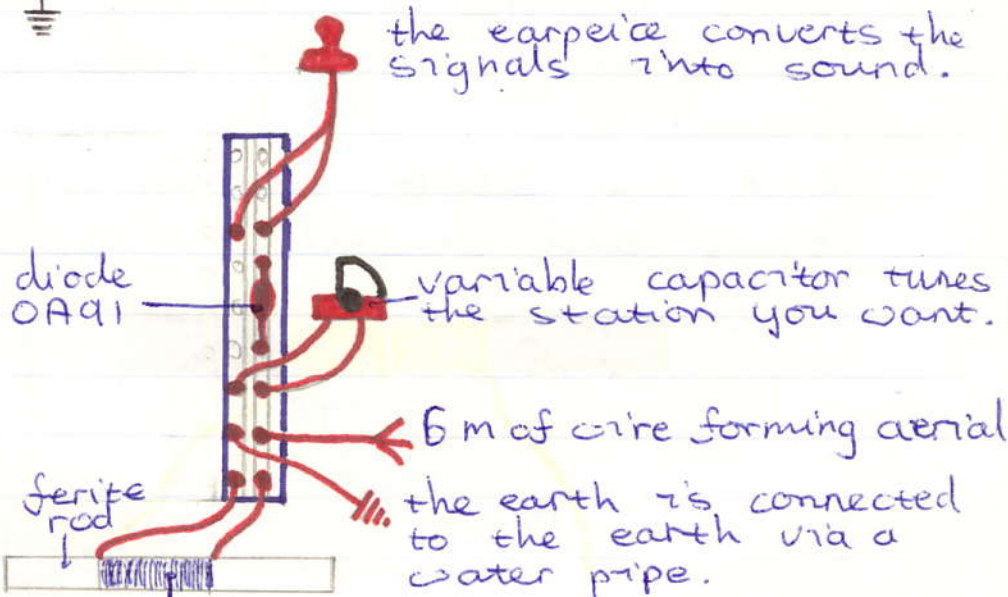 the earpeice converts the
signals into sound.
diode
OA91
variable capacitor tunes
the station you want.
6 m of wire forming aerial
ferite
rod
the earth is connected
to the earth via a
water pipe.